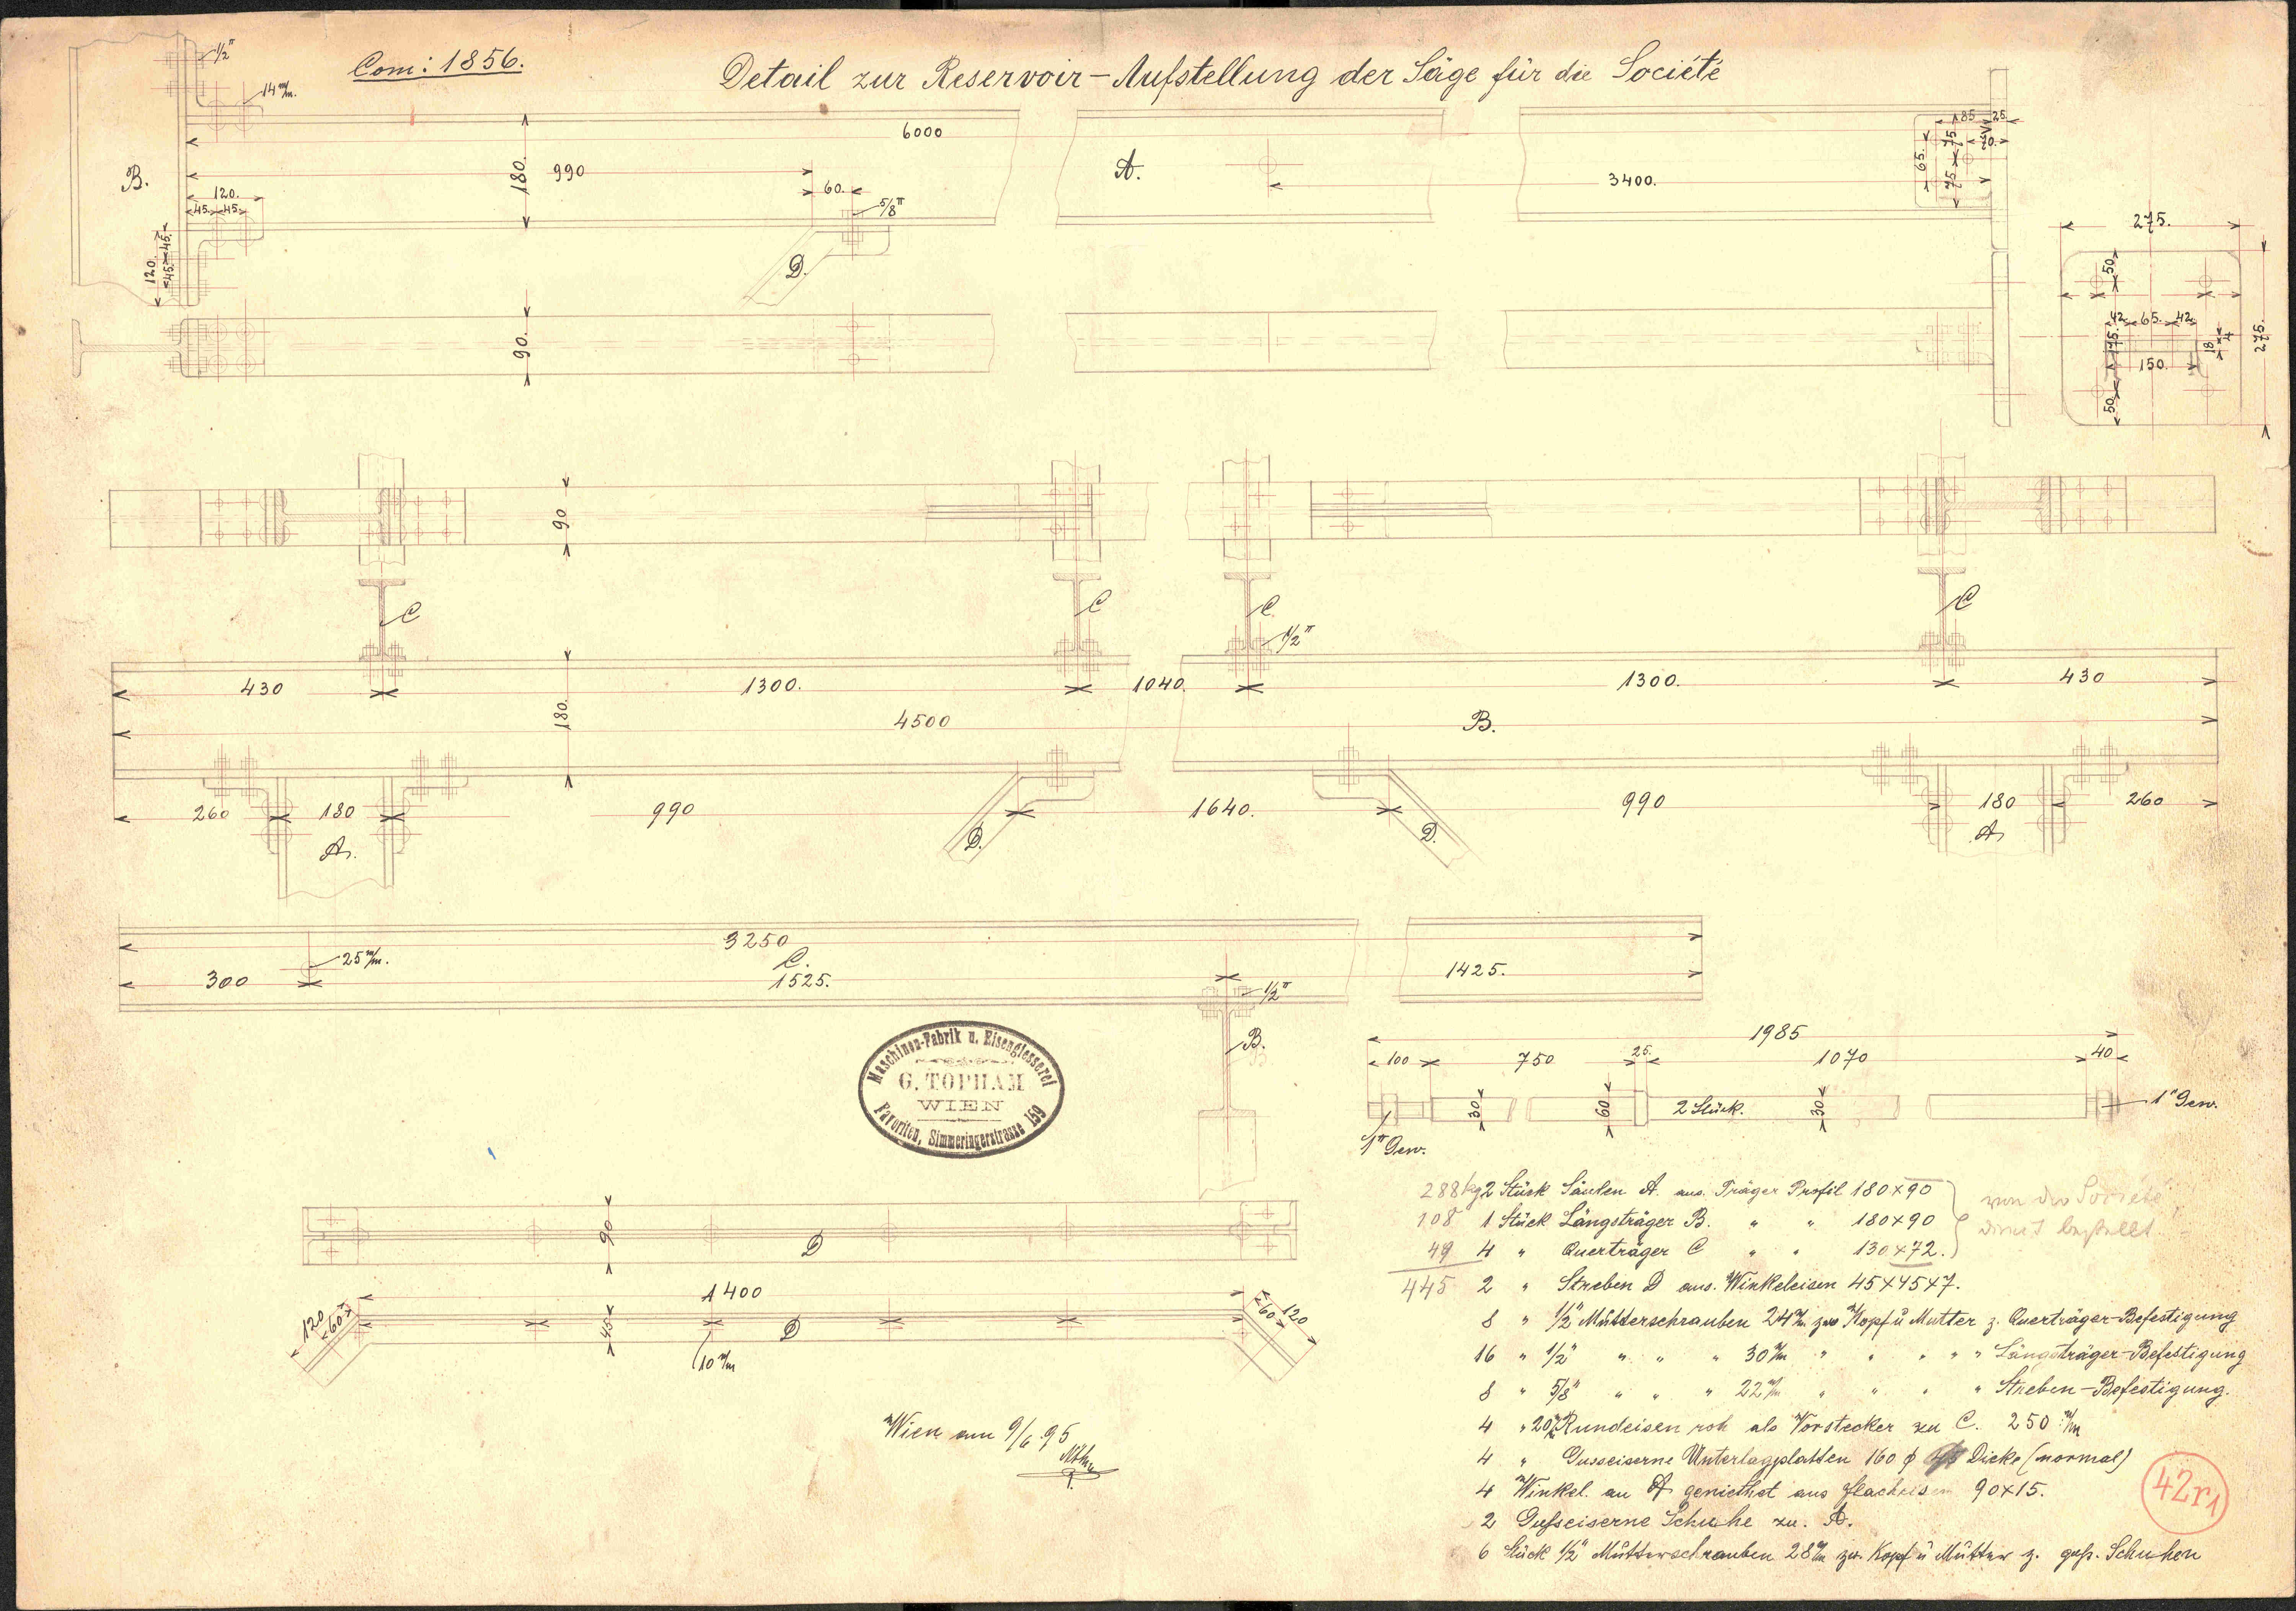 Com: 1856.
Detail zur Reservoir-Aufstellung der Säge für die Société
1/2"
14 m/m.
B.
6000
180.
990
60.
5/8"
120.
45. 45.
120.
45. 45.
D.
A.
3400.
85 25
65.
75
75
70.
275.
50
42 65. 42
175.
150.
18
4
275.
50
90.
90
C
C
C
1/2"
C
430
1300.
1040.
1300.
430
180.
4500
B.
260
180
990
1640.
990
180
260
A.
D.
D.
A
3250
C.
25 m/m.
300
1525.
1425.
1/2"
B.
Maschinen-Fabrik u. Eisengiesserei
G. TOPHAM
WIEN
Favoriten, Simmeringerstrasse 159
1985
100
750
25.
1070
40
30
60
2 Stück.
30
1" Gew.
1" Gew.
90
D
1400
120
60
45
10 m/m
D
60
120
288 kg 2 Stück Säulen A. aus. Träger Profil 180×90
108 1 Stück Längsträger B. " " 180×90
49 4 " Querträger C " " 130×72.
von der Société
direct bestellt.
445 2 " Streben D aus. Winkeleisen 45×45×7.
8 " 1/2" Mutterschrauben 24 m/m zw. Kopf u Mutter z. Querträger-Befestigung
16 " 1/2" " " " 30 m/m " " " " " Längsträger-Befestigung
8 " 5/8" " " " 22 m/m " " " " Streben-Befestigung.
4 " 20 m/m Rundeisen roh als Vorstecker zu C. 250 m/m
4 " Gusseiserne Unterlagplatten 160 ϕ Dicke (normal)
4 Winkel. an A geniethet aus flacheisen 90×15.
2 Gußeiserne Schuhe zu. A.
6 Stück 1/2" Mutterschrauben 28 m/m zw. Kopf u Mutter z. guß. Schuhen
Wien am 9/6 95
42r1